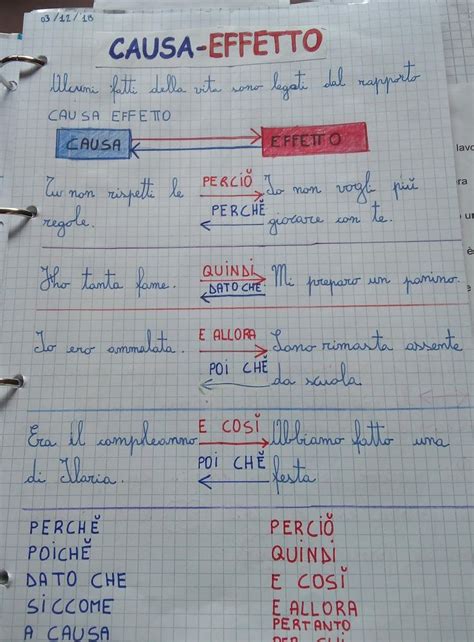 03/12/18
CAUSA-EFFETTO
Alcuni fatti della vita sono legati dal rapporto
CAUSA EFFETTO
CAUSA EFFETTO
Tu non rispetti le PERCIÒ Io non vogli più
regole. PERCHÈ giocare con te.
Ho tanta fame. QUINDI Mi preparo un panino.
DATO CHE
Io ero ammalata. E ALLORA Sono rimasta assente
POI CHÈ da scuola.
Era il compleanno E COSÌ Abbiamo fatto una
di Ilaria. POI CHÈ festa
PERCHÈ PERCIÒ
POICHÈ QUINDI
DATO CHE E COSÌ
SICCOME E ALLORA
A CAUSA PERTANTO
PER CUI